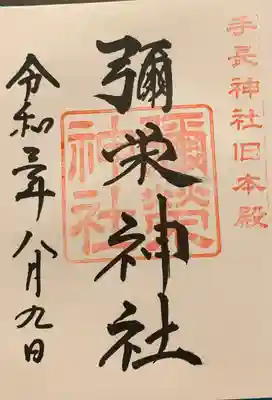 手長神社旧本殿
彌栄神社
彌榮神社
令和三年八月九日